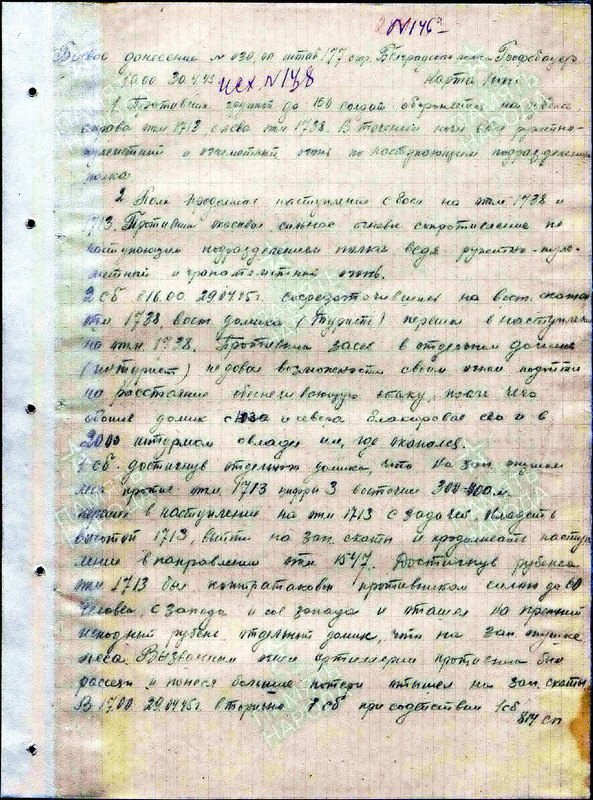 N 146а
Боевое донесение N 030, штаб 177 стр. Белградского полка Гросбауер
10.00 30.4.45 исх. N 138 карта
1. Противник группой до 150 солдат обороняется на рубеже
справа отм 1713, слева отм 1738. В течении ночи вел ружейно-
пулеметный и огонь по наступающим подразделениям
полка
2. Полк продолжал наступление с боем на отм 1738 и
1713. Противник оказывал сильное огневое сопротивление по
наступающим подразделениям полка ведя ружейно-пуле-
метный и гранатометный огонь.
2 сб в 16.00 29.04.45г. сосредоточившись на вост. скатах
отм. 1738, вост. домика (Турист) перешел в наступление
на отм. 1738. Противник засев в отдельном домике
(Турист) не давал возможности своим огнем подойти
на расстояние обеспечивающую атаку, после чего
обойдя домик с юга и севера блокировал его и в
20.00 штурмом овладел им, где окопался.
1 сб. достигнув отдельного домика, что на зап. опушке
леса против отм 1713 цифры 3 восточнее 300-400 м.
перешел в наступление на отм 1713 с задачей овладеть
высотой 1713, выйти на зап. скаты и продолжать наступ-
ление в направлении отм. 1547. Достигнув рубежа
отм. 1713 был контратакован противником силою до 60
человек с запада и отошел на прежний
исходный рубеж отдельный домик, что на зап. опушке
леса. Вызванным артиллерии противник был
рассеян и понеся большие потери отошел на зап. скаты
В 17.00 29.04.45г. вторично 1 сб при содействии 1 сб
814 сп